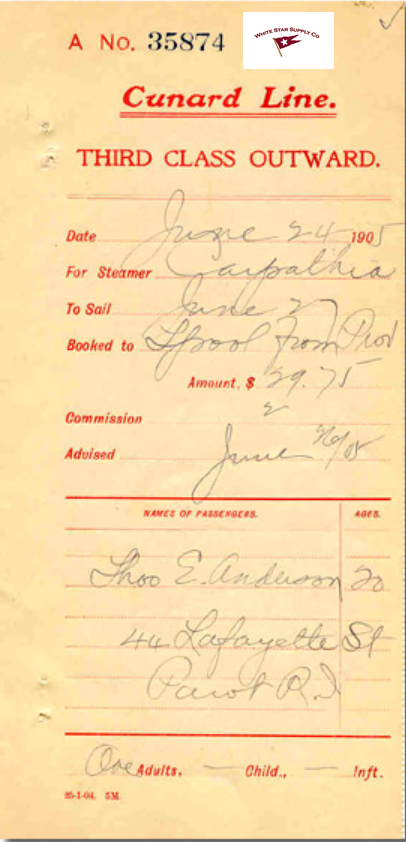 A No. 35874
WHITE STAR SUPPLY CO
Cunard Line.
THIRD CLASS OUTWARD.
Date June 24 1905
For Steamer Carpathia
To Sail June 27
Booked to Lpool from Prov
Amount, $ 29.75
Commission 2
Advised June 26/05
NAMES OF PASSENGERS. AGES.
Thos E. Anderson 20
44 Lafayette St
R.I
One Adults, — Child., — Inft.
25-1-04. 5M.